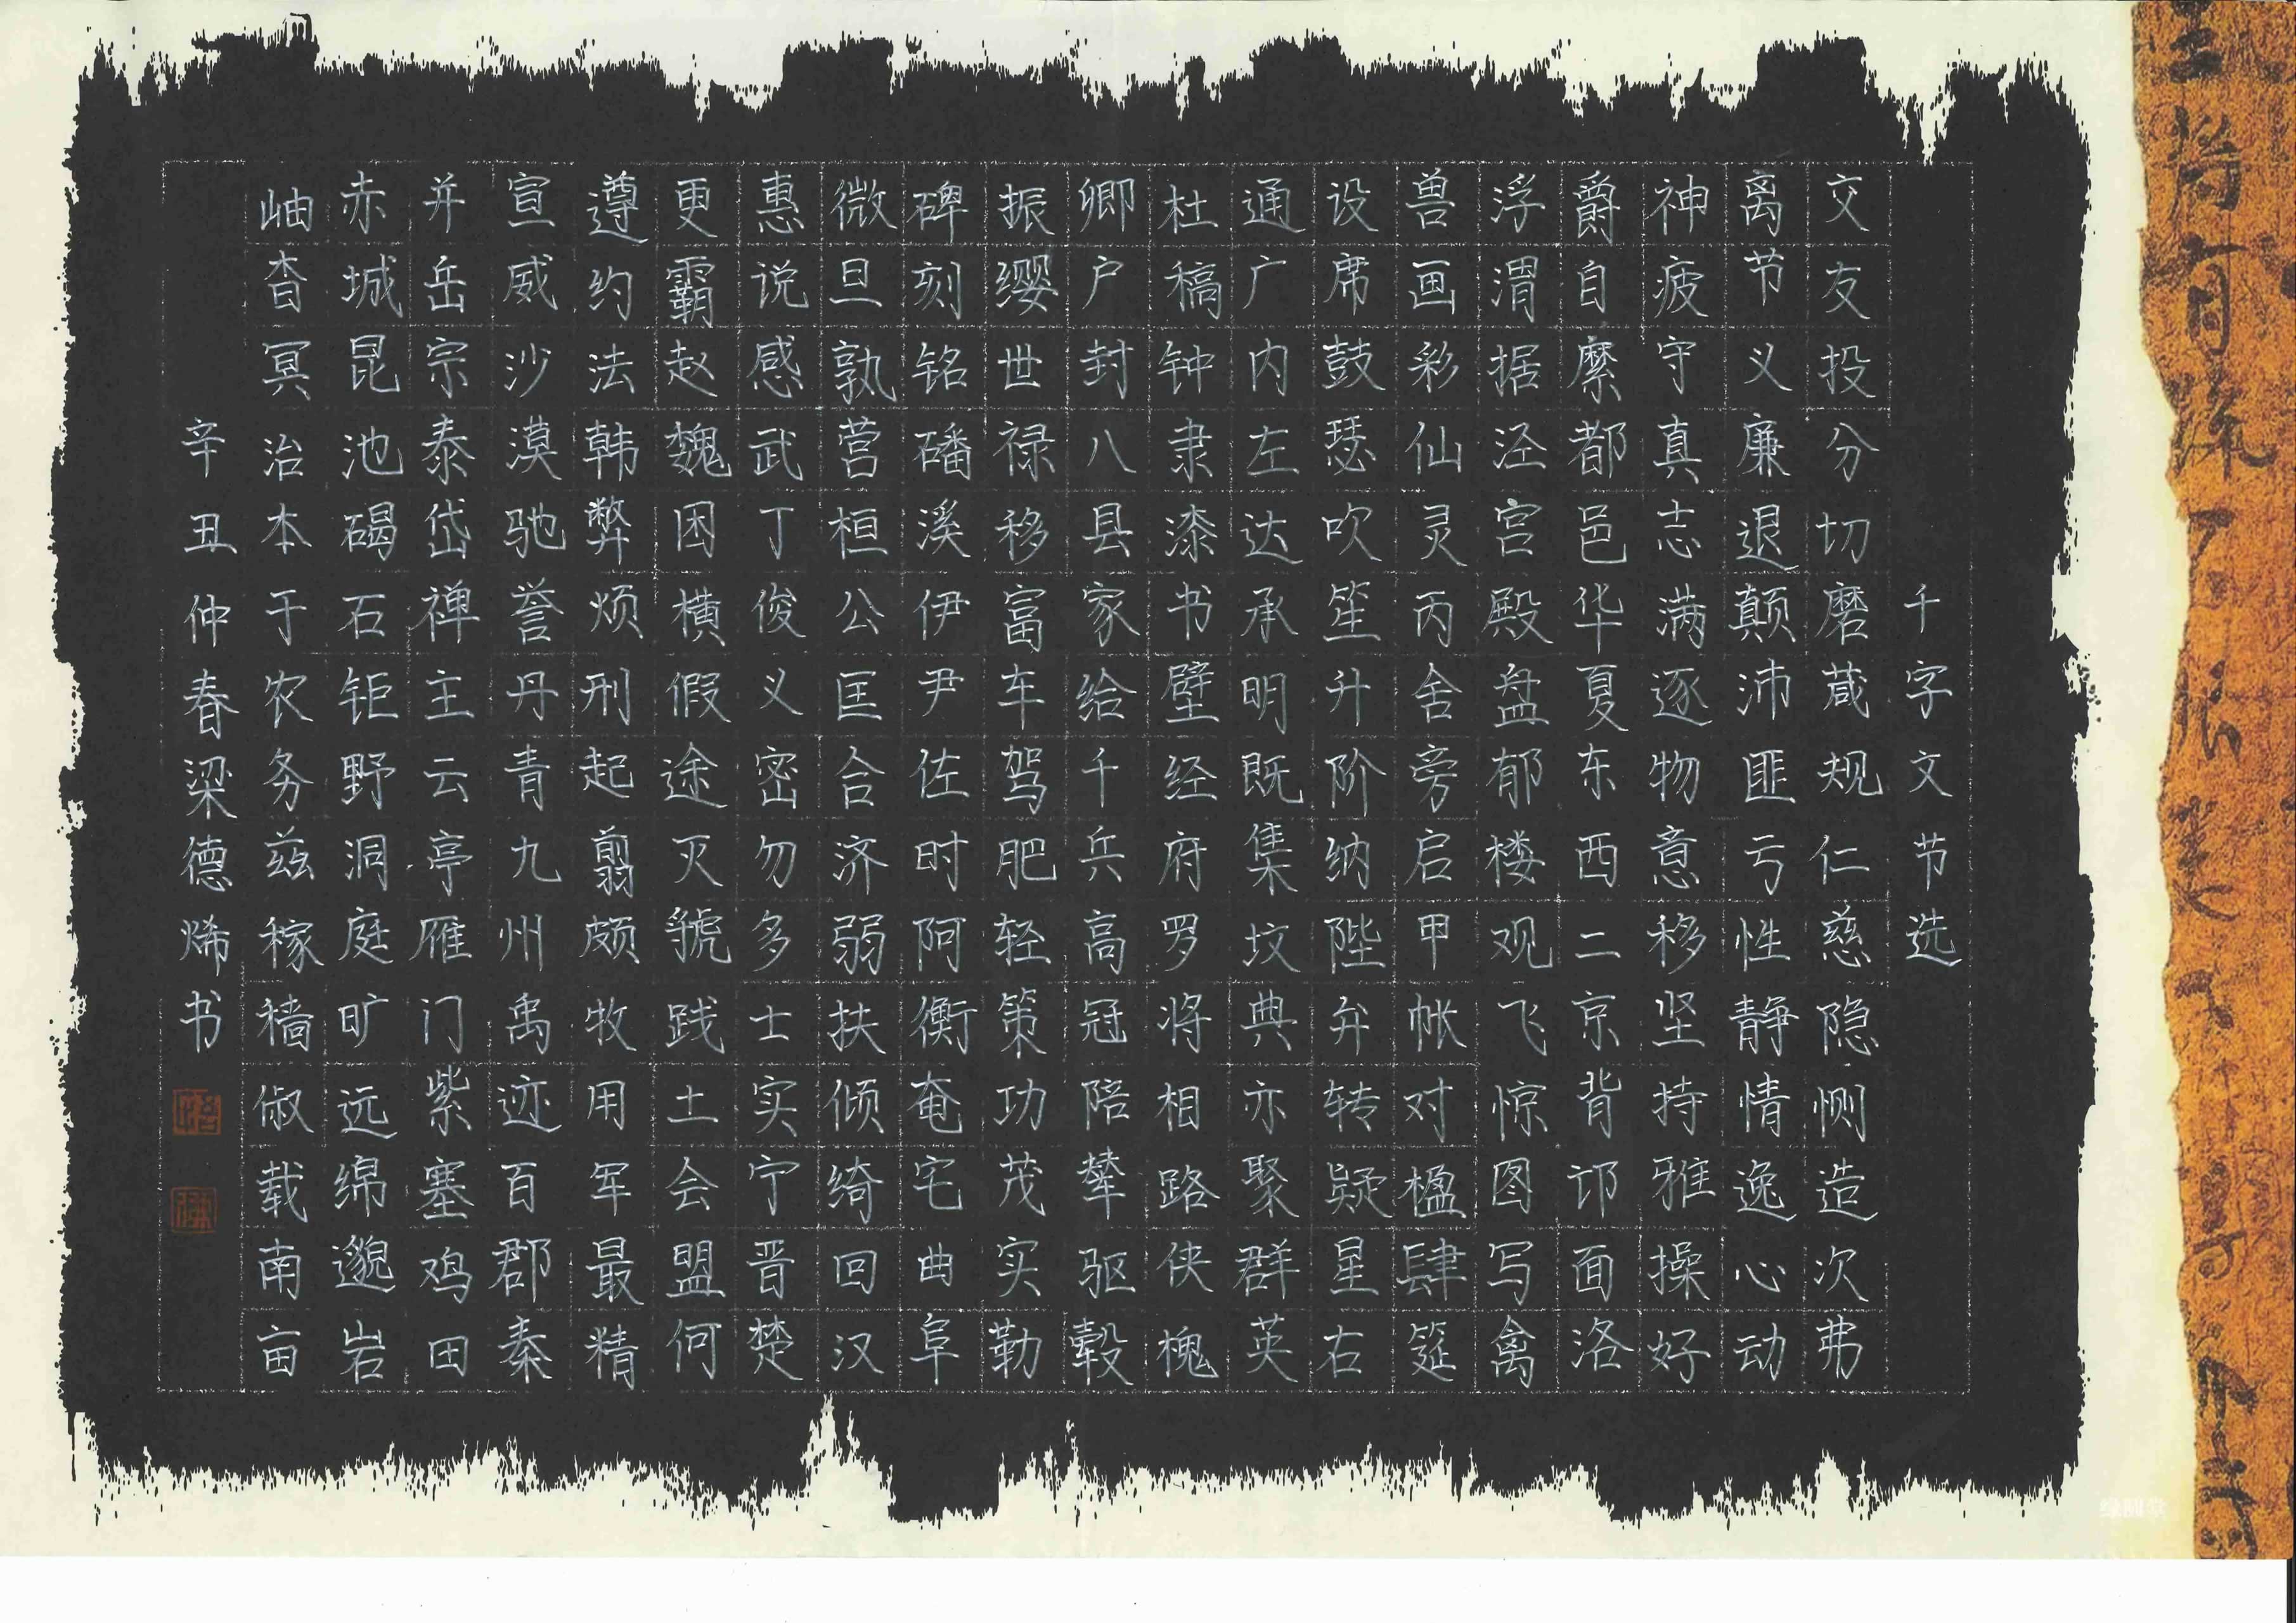 千字文节选
交友投分切磨箴规仁慈隐恻造次弗
离节义廉退颠沛匪亏性静情逸心动
神疲守真志满逐物意移坚持雅操好
爵自縻都邑华夏东西二京背邙面洛
浮渭据泾宫殿盘郁楼观飞惊图写禽
兽画彩仙灵丙舍旁启甲帐对楹肆筵
设席鼓瑟吹笙升阶纳陛弁转疑星右
通广内左达承明既集坟典亦聚群英
杜稿钟隶漆书壁经府罗将相路侠槐
卿户封八县家给千兵高冠陪辇驱毂
振缨世禄移富车驾肥轻策功茂实勒
碑刻铭磻溪伊尹佐时阿衡奄宅曲阜
微旦孰营桓公匡合济弱扶倾绮回汉
惠说感武丁俊义密勿多士实宁晋楚
更霸赵魏困横假途灭虢践土会盟何
遵约法韩弊烦刑起翦颇牧用军最精
宣威沙漠驰誉丹青九州禹迹百郡秦
并岳宗泰岱禅主云亭雁门紫塞鸡田
赤城昆池碣石钜野洞庭旷远绵邈岩
岫杳冥治本于农务兹稼穑俶载南亩
辛丑仲春梁德烯书